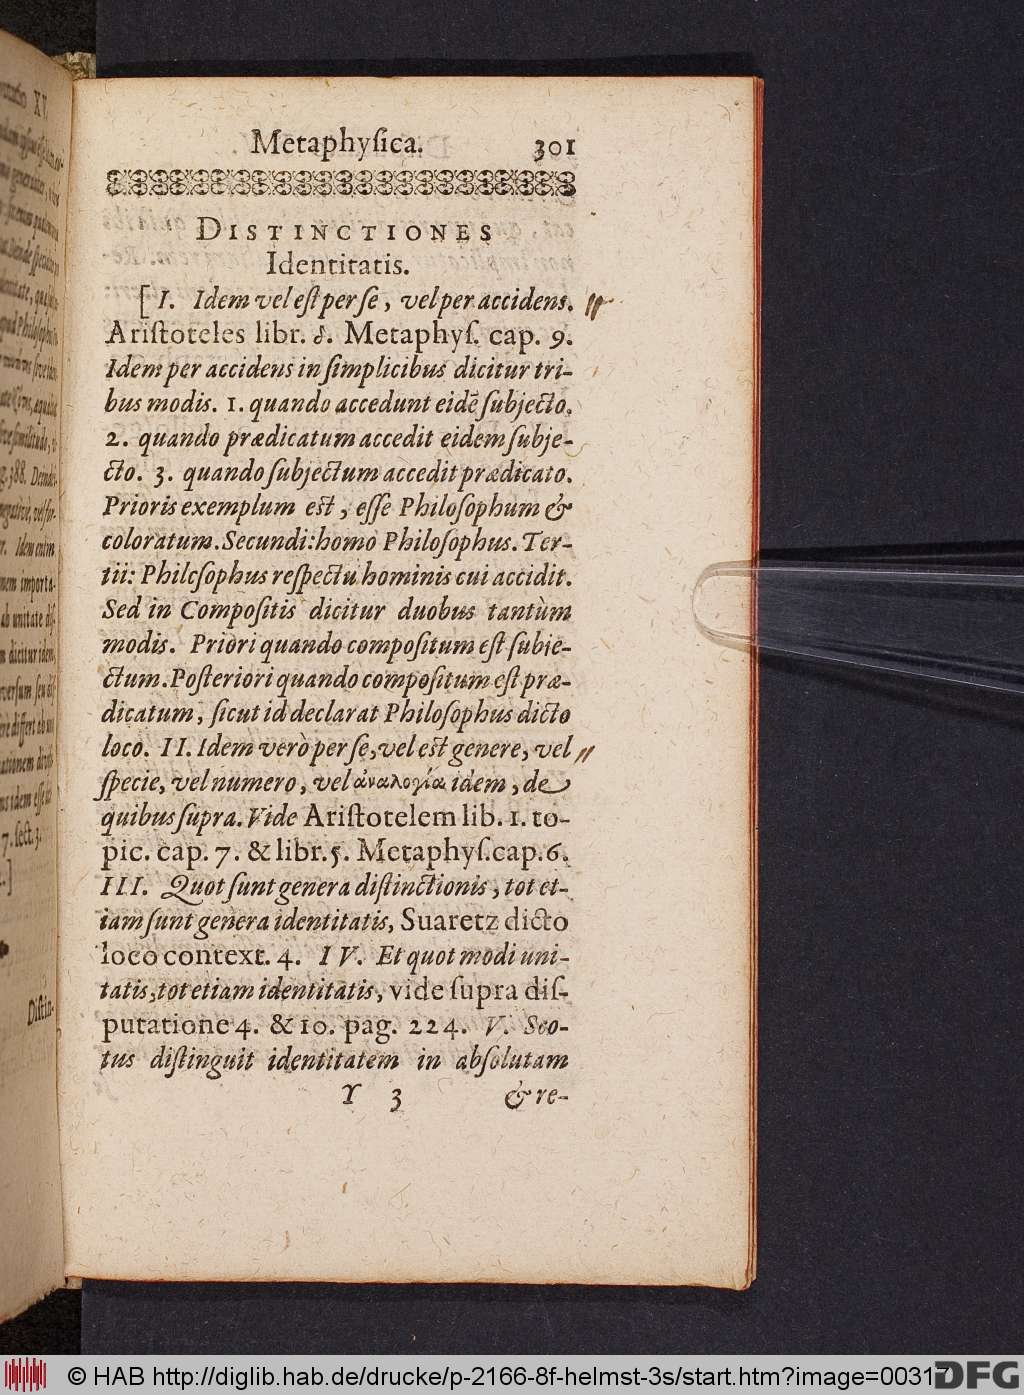 Metaphyſica. 301
DISTINCTIONES
Identitatis.
[I. Idem vel eſt per ſe, vel per accidens.
Ariſtoteles libr. δ. Metaphyſ. cap. 9.
Idem per accidens in ſimplicibus dicitur tri-
bus modis. 1. quando accedunt eidē ſubjecto.
2. quando prædicatum accedit eidem ſubje-
cto. 3. quando ſubjectum accedit prædicato.
Prioris exemplum est, eſſe Philoſophum &
coloratum. Secundi: homo Philoſophus. Ter-
tii: Philcſophus reſpectu hominis cui accidit.
Sed in Compoſitis dicitur duobus tantùm
modis. Priori quando compoſitum eſt ſubje-
ctum. Poſteriori quando compoſitum eſt præ-
dicatum, ſicut id declarat Philoſophus dicto
loco. II. Idem verò per ſe, vel est genere, vel
ſpecie, vel numero, vel ἀναλογία idem, de
quibus ſupra. Vide Ariſtotelem lib. 1. to-
pic. cap. 7. & libr. 5. Metaphyſ. cap. 6.
III. Quot ſunt genera diſtinctionis, tot et-
iam ſunt genera identitatis, Suaretz dicto
loco context. 4. IV. Et quot modi uni-
tatis, tot etiam identitatis, vide ſupra diſ-
putatione 4. & 10. pag. 224. V. Sco-
tus diſtinguit identitatem in abſolutam
Y 3 & re-
© HAB http://diglib.hab.de/drucke/p-2166-8f-helmst-3s/start.htm?image=00317
DFG